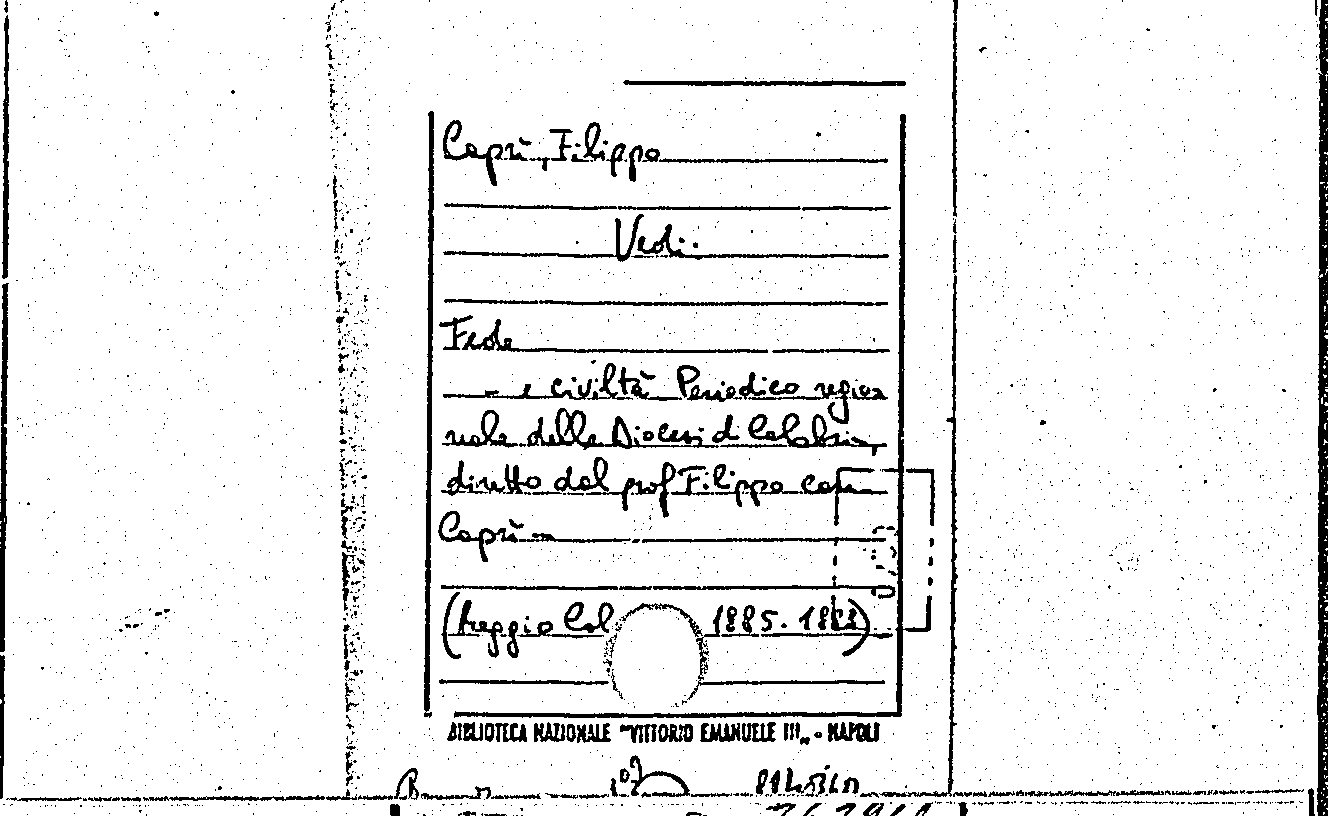 Caprì, Filippo
Vedi:
Fede
— e civiltà Periodico regio
nale delle Diocesi di Calabria,
diretto dal prof Filippo
Caprì —
(Reggio Cal 1885.
BIBLIOTECA NAZIONALE "VITTORIO EMANUELE III„ - NAPOLI